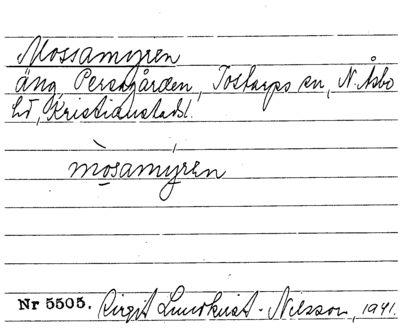 Mossamyren
äng, Persgården, Tostarps sn, N. Åsbo
hd, Kristianstads l.
mòsamýren
Nr 5505. Birgit Lundkvist - Nilsson, 1941.